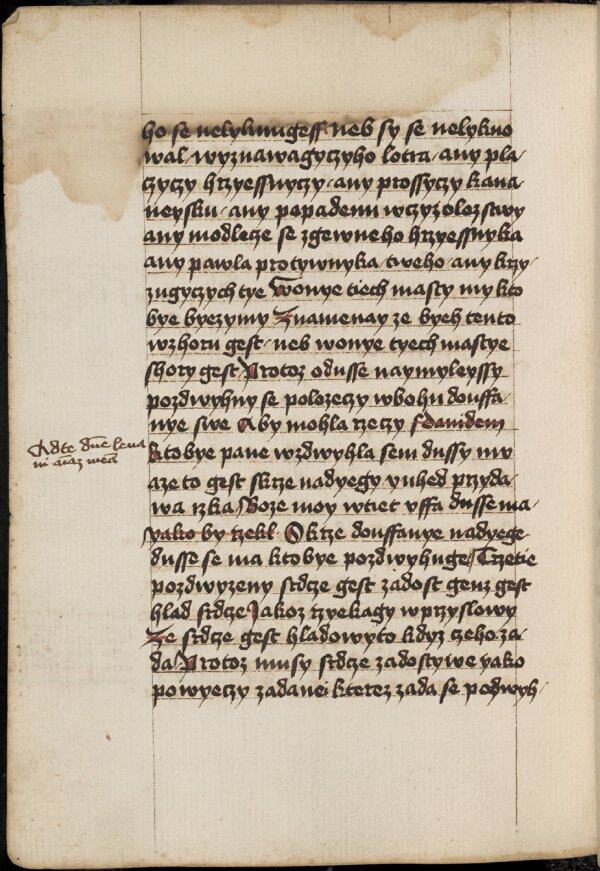 ho se nelyknugess neb sy se nelykno
wal wyznawagyczyho lotra / any pla
czyczy hrzyessnyczy / any prossyczy kana
neysku / any popadenu wczyzolozstwy
any modlecze se zgewneho hrzyessnyka
any pawla protywnyka / tweho / any krzy /
zugyczych tye Wonye tiech masty my kto
bye byezymy Znamenay ze byeh tento
wzhoru gest / neb wonye tyech mastye
shory gest Protoz odusse naymyleyssy
pozdwyhny se polozeczy wbohu douffa /
nye swe Aby mohla rzeczy sdawidem
Adte dne leua
ui aiaz mea
ktobye pane wzdwyhla sem dussy mu
aze to gest skrze nadyegy yuhed przyda /
wa rzka Boze moy wtiet uffa dusse ma /
yako by rzekl Skrze douffanye nadyege
dusse se ma ktobye pozdwyhuge / Trzetie
pozdwyzeny srdcze gest zadost genz gest
hlad srdcze Jakoz rzyekagy wprzyslowy
Ze srdcze gest hladowyto kdyz czeho za /
da Protoz musy srdcze zadostywe yako
powyeczy zadanei kterez zada se pozdwyh /